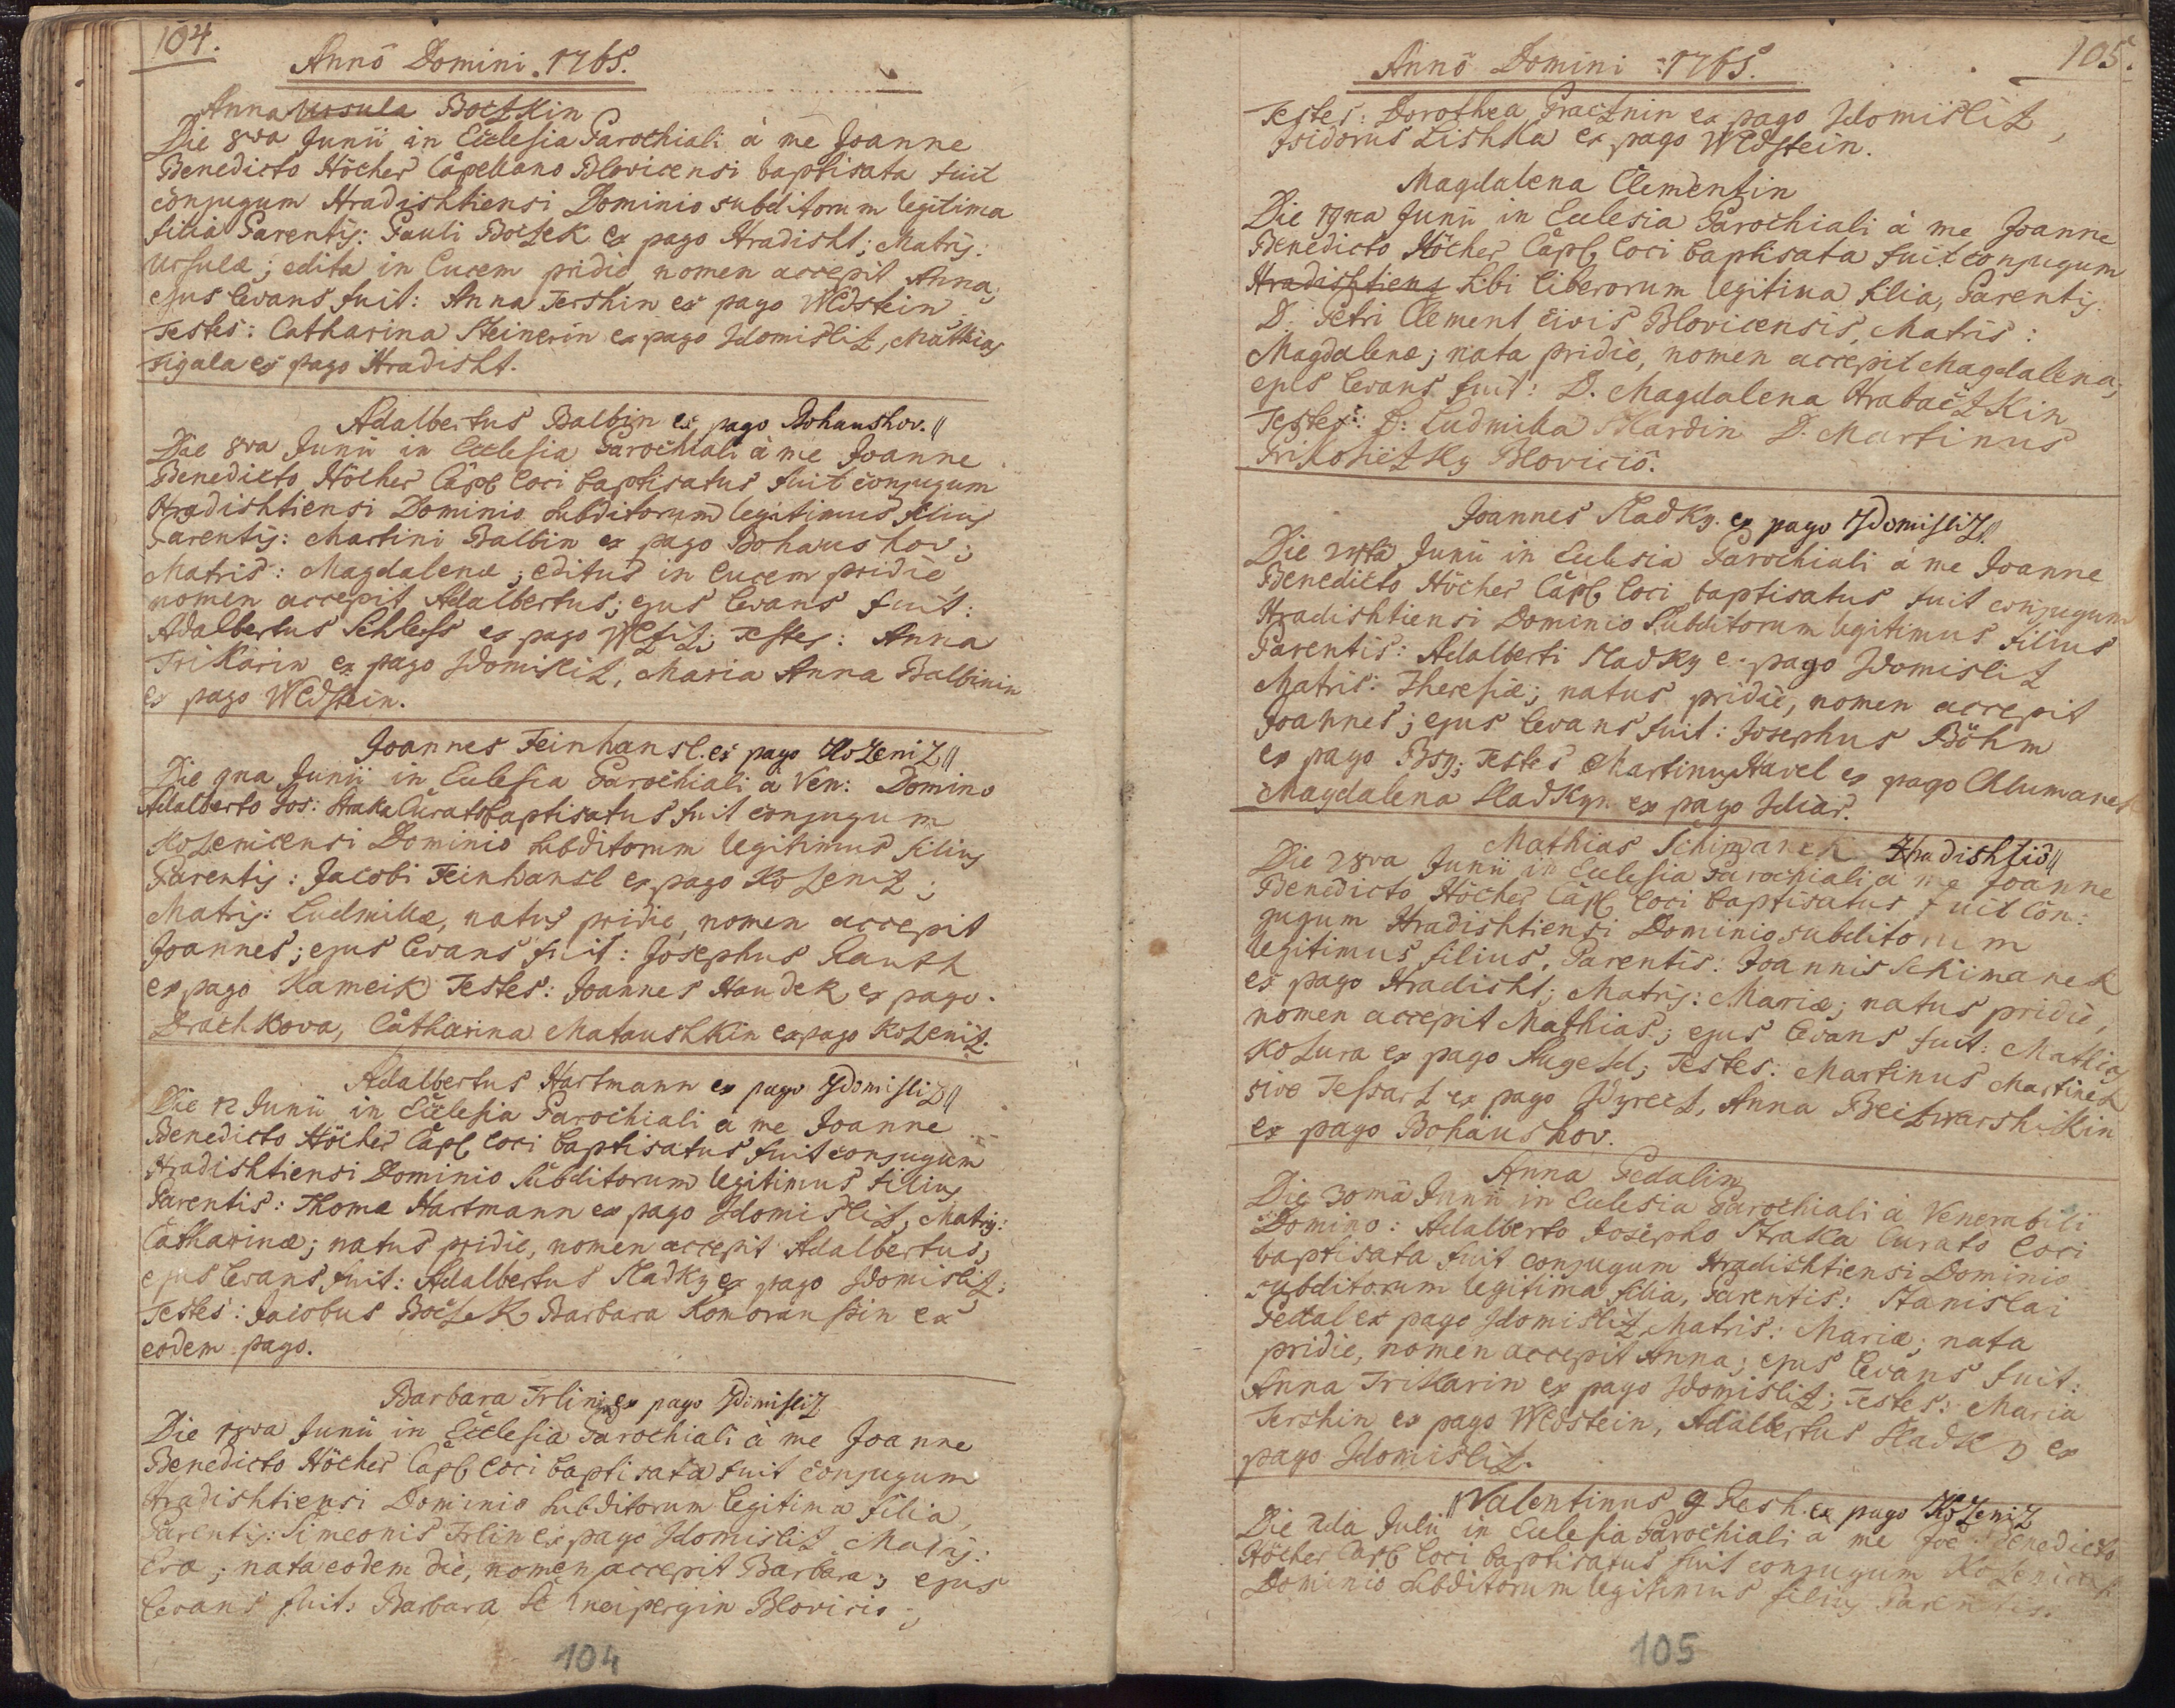 104.
Annô Domini. 1765.
Anna Ursula Boczkin
Die 8va Junii in Ecclesia Parochiali à me Joanne
Benedicto Höcher Capellano Blovicensi baptisata fuit
conjugum Hradishtiensi Dominio subditorum legitima
filia Parentis: Pauli Boczek ex pago Hradisht; Matris:
Ursulæ; edita in lucem pridie nomen accepit Anna;
ejus levans fuit: Anna Tershin ex pago Wldstein
Testes: Catharina Steinerin ex pago Zdomislitz, Mathias
Figala ex pago Hradisht.
Adalbertus Balbin ex pago Bohaushov.
Die 8va Junii in Ecclesia Parochiali à me Joanne
Benedicto Höcher Capl. loci baptisatus fuit conjugum
Hradishtiensi Dominio subditorum legitimus filius
Parentis: Martini Balbin ex pago Bohaushov;
Matris: Magdalenæ; editus in lucem pridie
nomen accepit Adalbertus; ejus levans fuit:
Adalbertus Schleiss ex pago; Testes: Anna
Trikarin ex pago Zdomislitz, Maria Anna Balbinin
ex pago Wldstein.
Joannes Feinhansl. ex pago Kozenitz
Die 9na Junii in Ecclesia Parochiali à Ven: Domino
Adalberto Jos: Straka Curato baptisatus fuit conjugum
Kozenicensi Dominio subditorum legitimus filius
Parentis: Jacobi Feinhansl ex pago Kozenitz;
Matris: Ludmillæ, natus pridie, nomen accepit
Joannes; ejus levans fuit: Josephus Rauth
ex pago Kameik Testes: Joannes Haudek ex pago
Drachkova, Catharina Mataushkin ex pago Kozenitz.
Adalbertus Hartmann ex pago Zdomislitz
Die 12 Junii in Ecclesia Parochiali à me Joanne
Benedicto Höcher Capl. loci baptisatus fuit conjugum
Hradishtiensi Dominio subditorum legitimus filius
Parentis: Thomæ Hartmann ex pago Zdomislitz, Matris:
Catharinæ; natus pridie, nomen accepit Adalbertus;
ejus levans fuit: Adalbertus Sladky ex pago Zdomislitz;
Testes: Jacobus Boczek, Barbara ex
eodem pago.
Barbara Irlin ex pago Zdomislitz
Die 18va Junii in Ecclesia Parochiali à me Joanne
Benedicto Höcher Capl. loci baptisata fuit conjugum
Hradishtiensi Dominio subditorum legitima filia,
Parentis: Simeonis Irlin ex pago Zdomislitz Matris:
Eva; nata eodem die, nomen accepit Barbara; ejus
levans fuit: Barbara Blovicio;
104
105.
Annô Domini 1765.
Testes: Dorothea Fractnin ex pago Zdomislitz,
Isidorus Lishka ex pago Wldstein.
Magdalena Clementin
Die 19na Junii in Ecclesia Parochiali à me Joanne
Benedicto Höcher Capl. loci baptisata fuit conjugum
Hradishtiens sibi liberorum legitima filia, Parentis:
D. Petri Clement civis Blovicensis, Matris:
Magdalenæ; nata pridie, nomen accepit Magdalena;
ejus levans fuit: D. Magdalena Hrabaczkin
Testes: D: Ludmilla D. Martinus
Prikonetzky Blovicio.
Joannes Sladky. ex pago Zdomislitz
Die 24ta Junii in Ecclesia Parochiali à me Joanne
Benedicto Höcher Capl. loci baptisatus fuit conjugum
Hradishtiensi Dominio subditorum legitimus filius
Parentis: Adalberti Sladky ex pago Zdomislitz
Matris: Theresiæ; natus pridie, nomen accepit
Joannes; ejus levans fuit: Josephus Böhm
ex pago Bsy; Testes Martinus Havel ex pago Chlumanek
Magdalena Sladkyn ex pago Zdiar.
Mathias Schimanek Hradishtio
Die 28va Junii in Ecclesia Parochiali à me Joanne
Benedicto Höcher Capl. loci baptisatus fuit con:
jugum Hradishtiensi Dominio subditorum
legitimus filius, Parentis: Joannis Schimanek
ex pago Hradisht; Matris: Mariæ; natus pridie,
nomen accepit Mathias; ejus levans fuit: Mathias
Kozura ex pago Augezd; Testes: Martinus Martinek
sive Tessarz ex pago, Anna
ex pago Bohaushov.
Anna Pedalin
Die 30mâ Junii in Ecclesia Parochiali à Venerabili
Domino: Adalberto Josepho Straka Curato loci
baptisata fuit conjugum Hradishtiensi Dominio
subditorum legitima filia, Parentis: Stanislai
Pedal ex pago Zdomislitz Matris: Mariæ; nata
pridie, nomen accepit Anna; ejus levans fuit:
Anna Trikarin ex pago Zdomislitz; Testes: Maria
Tershin ex pago Wldstein, Adalbertus Sladky ex
pago Zdomislitz.
Valentinus Resh. ex pago Kozenitz
Die 2da Julii in Ecclesia Parochiali à me Joe Benedicto
Höcher Capl. loci baptisatus fuit conjugum Kozenicensi
Dominio subditorum legitimus filius Parentis:
105